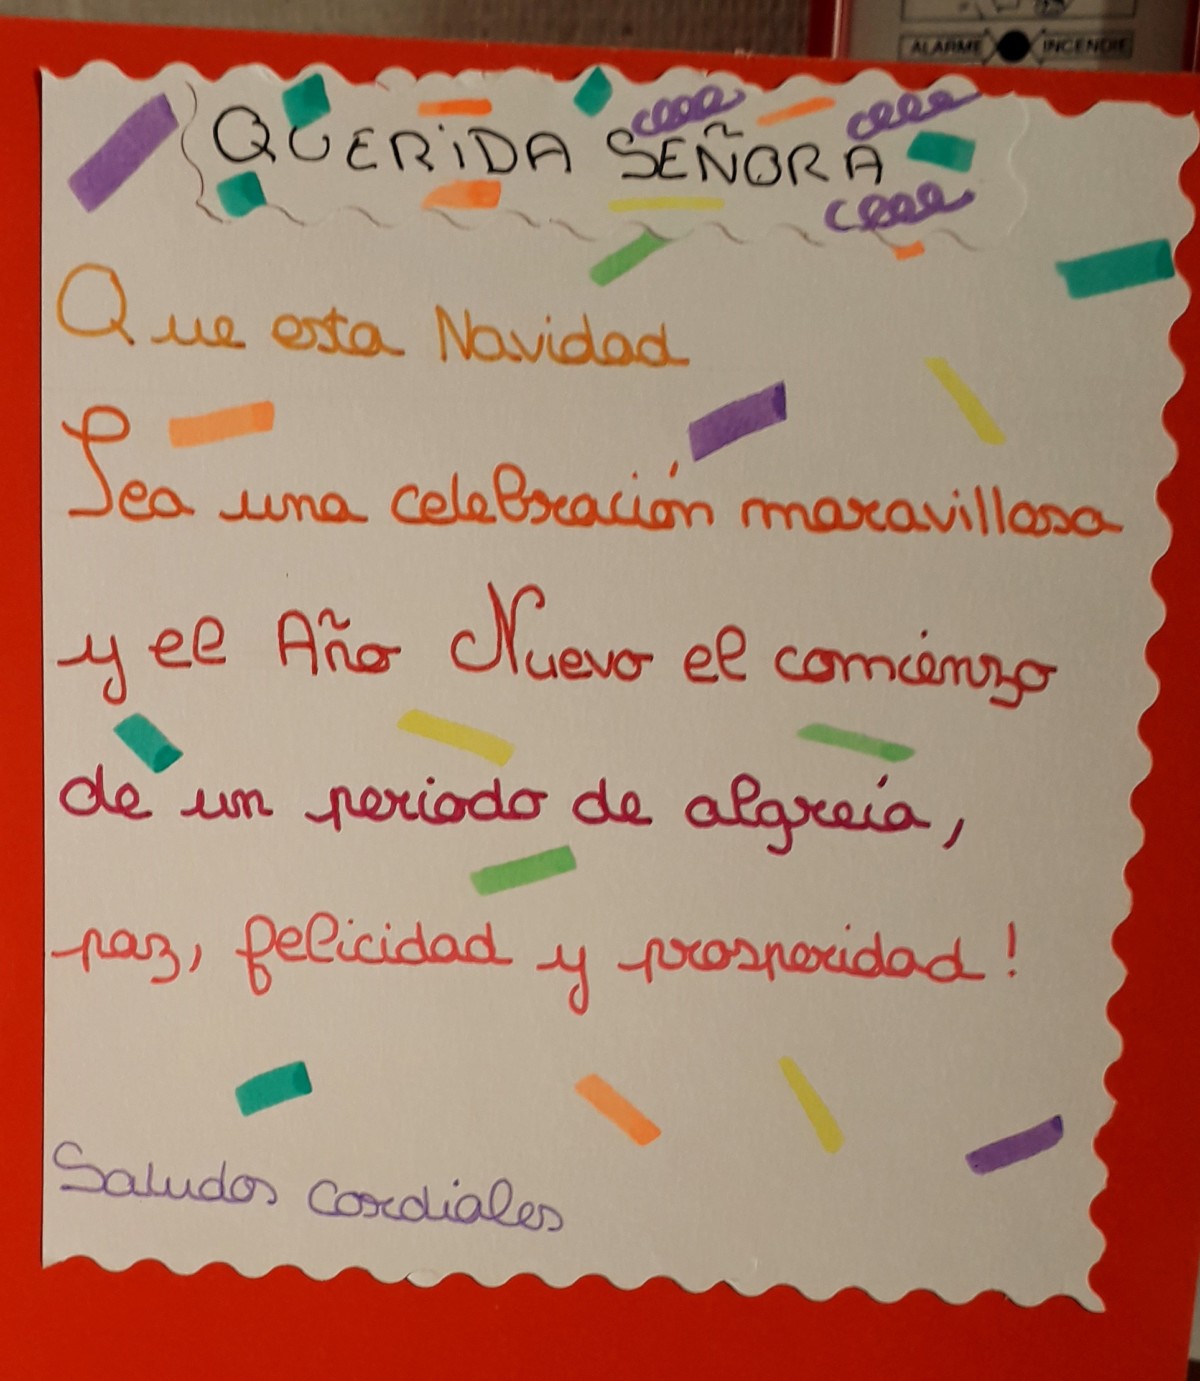 ALARME INCENDIE
QUERiDA SEÑORA
Que esta Navidad
Sea una celebración maravillosa
y el Año Nuevo el comienzo
de un periodo de algreía,
paz, felicidad y prosperidad !
Saludos cordiales